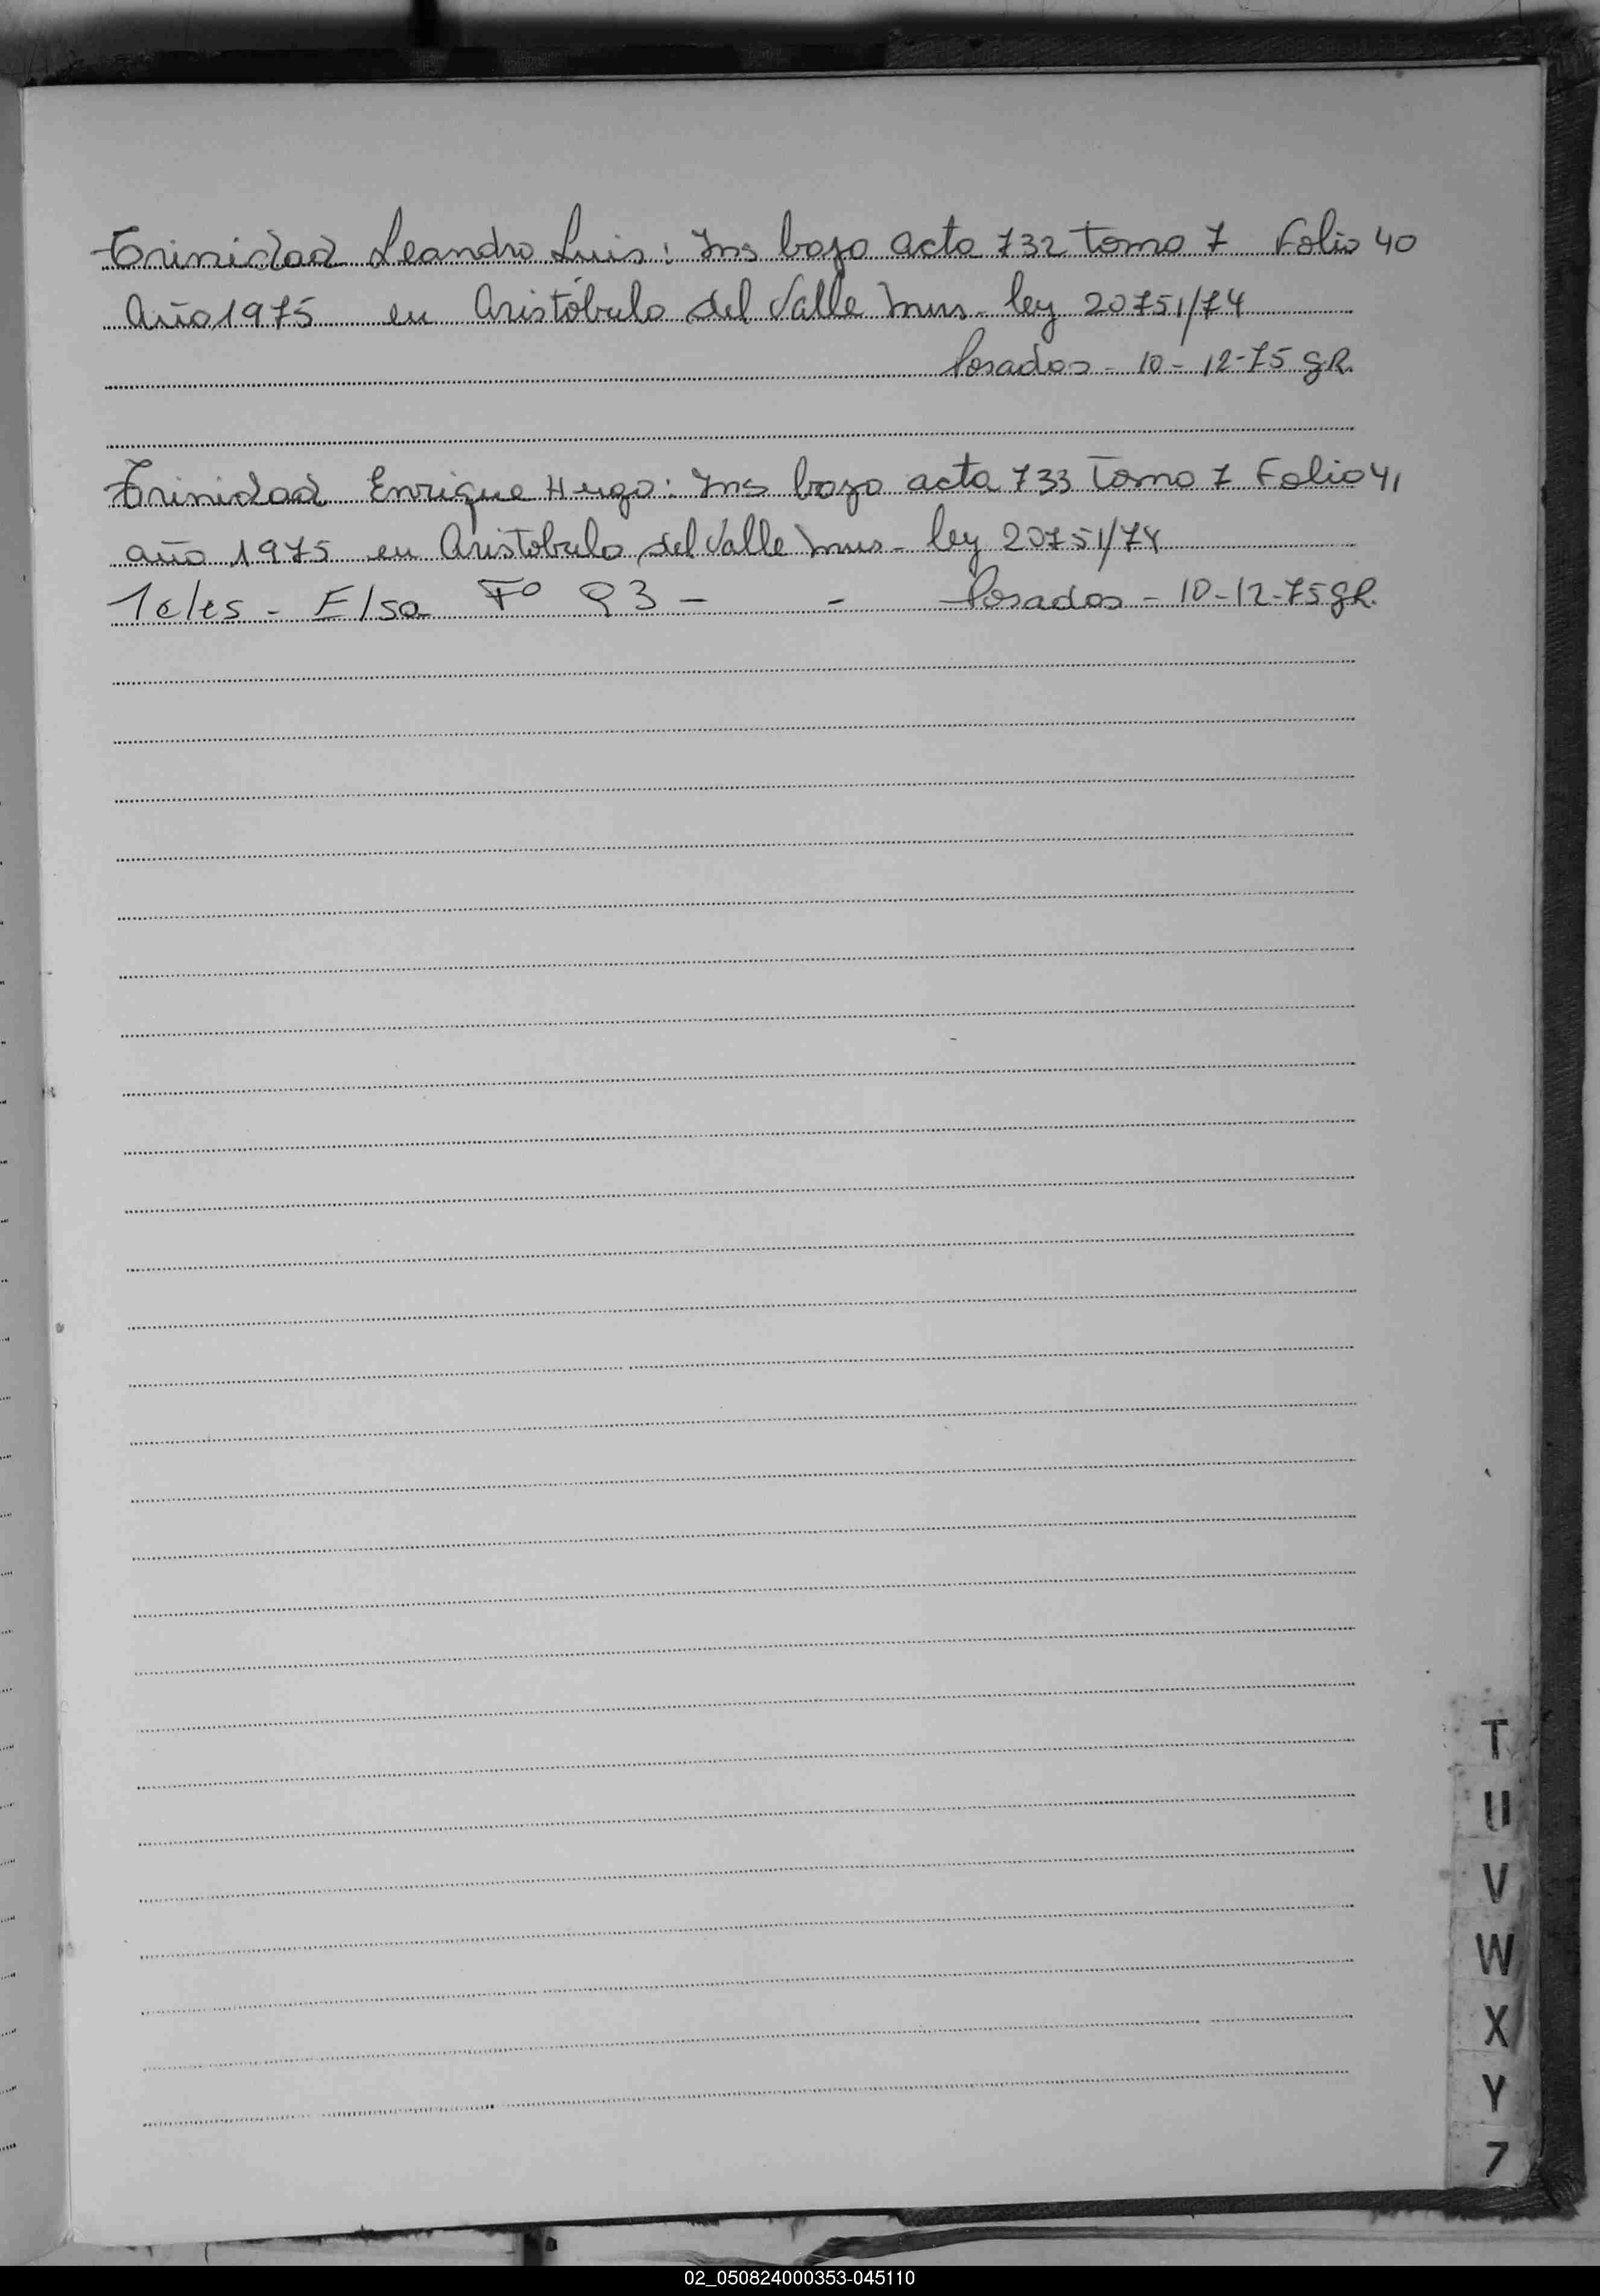 Trinidad Leandro Luis: Ins bajo acta 732 tomo 7 Folio 40
Año 1975 en Aristóbulo del Valle Mnes. ley 20751/74
Posadas - 10 - 12-75 GR.
Trinidad Enrique Hugo: Ins bajo acta 733 Tomo 7 Folio 41
año 1975 en Aristobulo del Valle Mnes - ley 20751/74
Teles - Elsa Fº 93 - - Posadas - 10-12-75 GR.
T
U
V
W
X
Y
Z
02_050824000353-045110